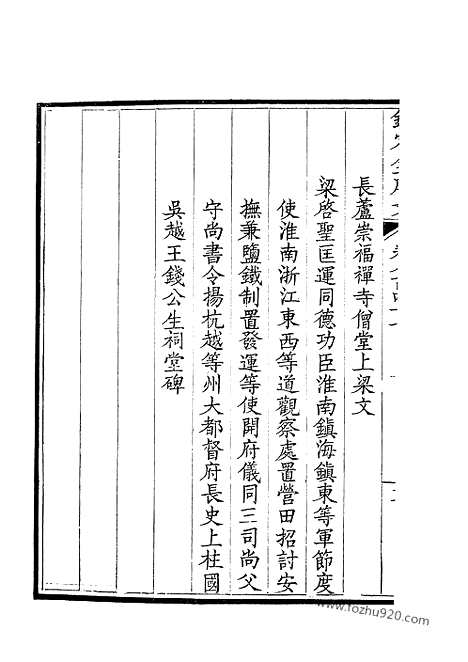 長蘆崇福禪寺僧堂上梁文
梁啓聖匡運同德功臣淮南鎮海鎮東等軍節度
使淮南浙江東西等道觀察處置營田招討安
撫兼鹽鐵制置發運等使開府儀同三司尚父
守尚書令揚杭越等州大都督府長史上柱國
吳越王錢公生祠堂碑
www.fozhu920.com